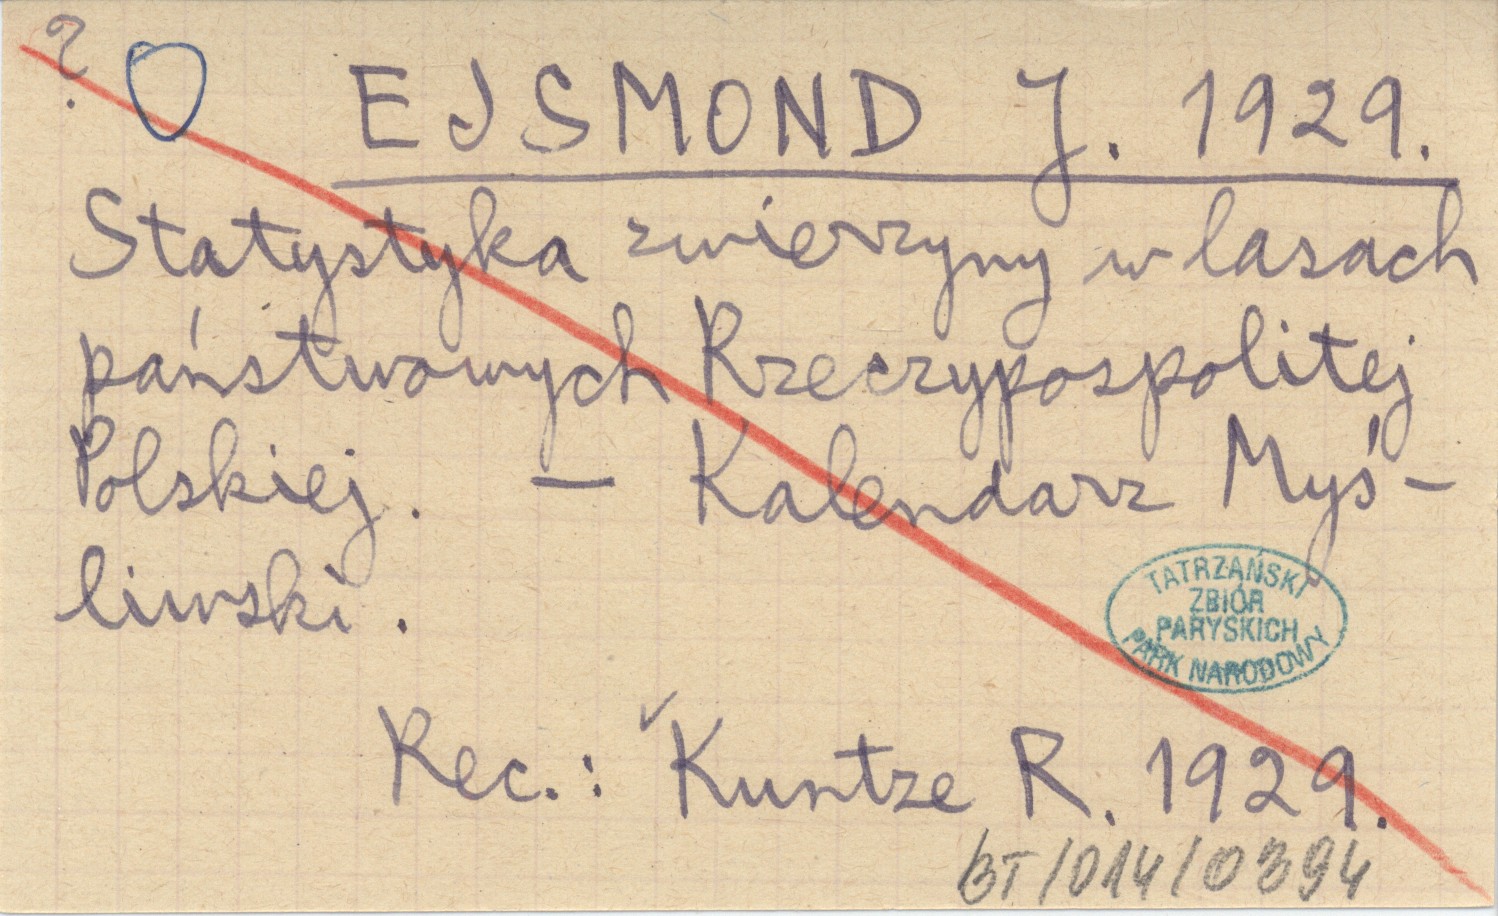 ?
EJSMOND J. 1929.
Statystyka zwierzyny w lasach
państwowych Rzeczypospolitej
Polskiej. — Kalendarz Myś-
liwski.
TATRZAŃSKI
ZBIÓR
PARYSKICH
PARK NARODOWY
Rec.: Kuntze R. 1929.
BT/014/0394